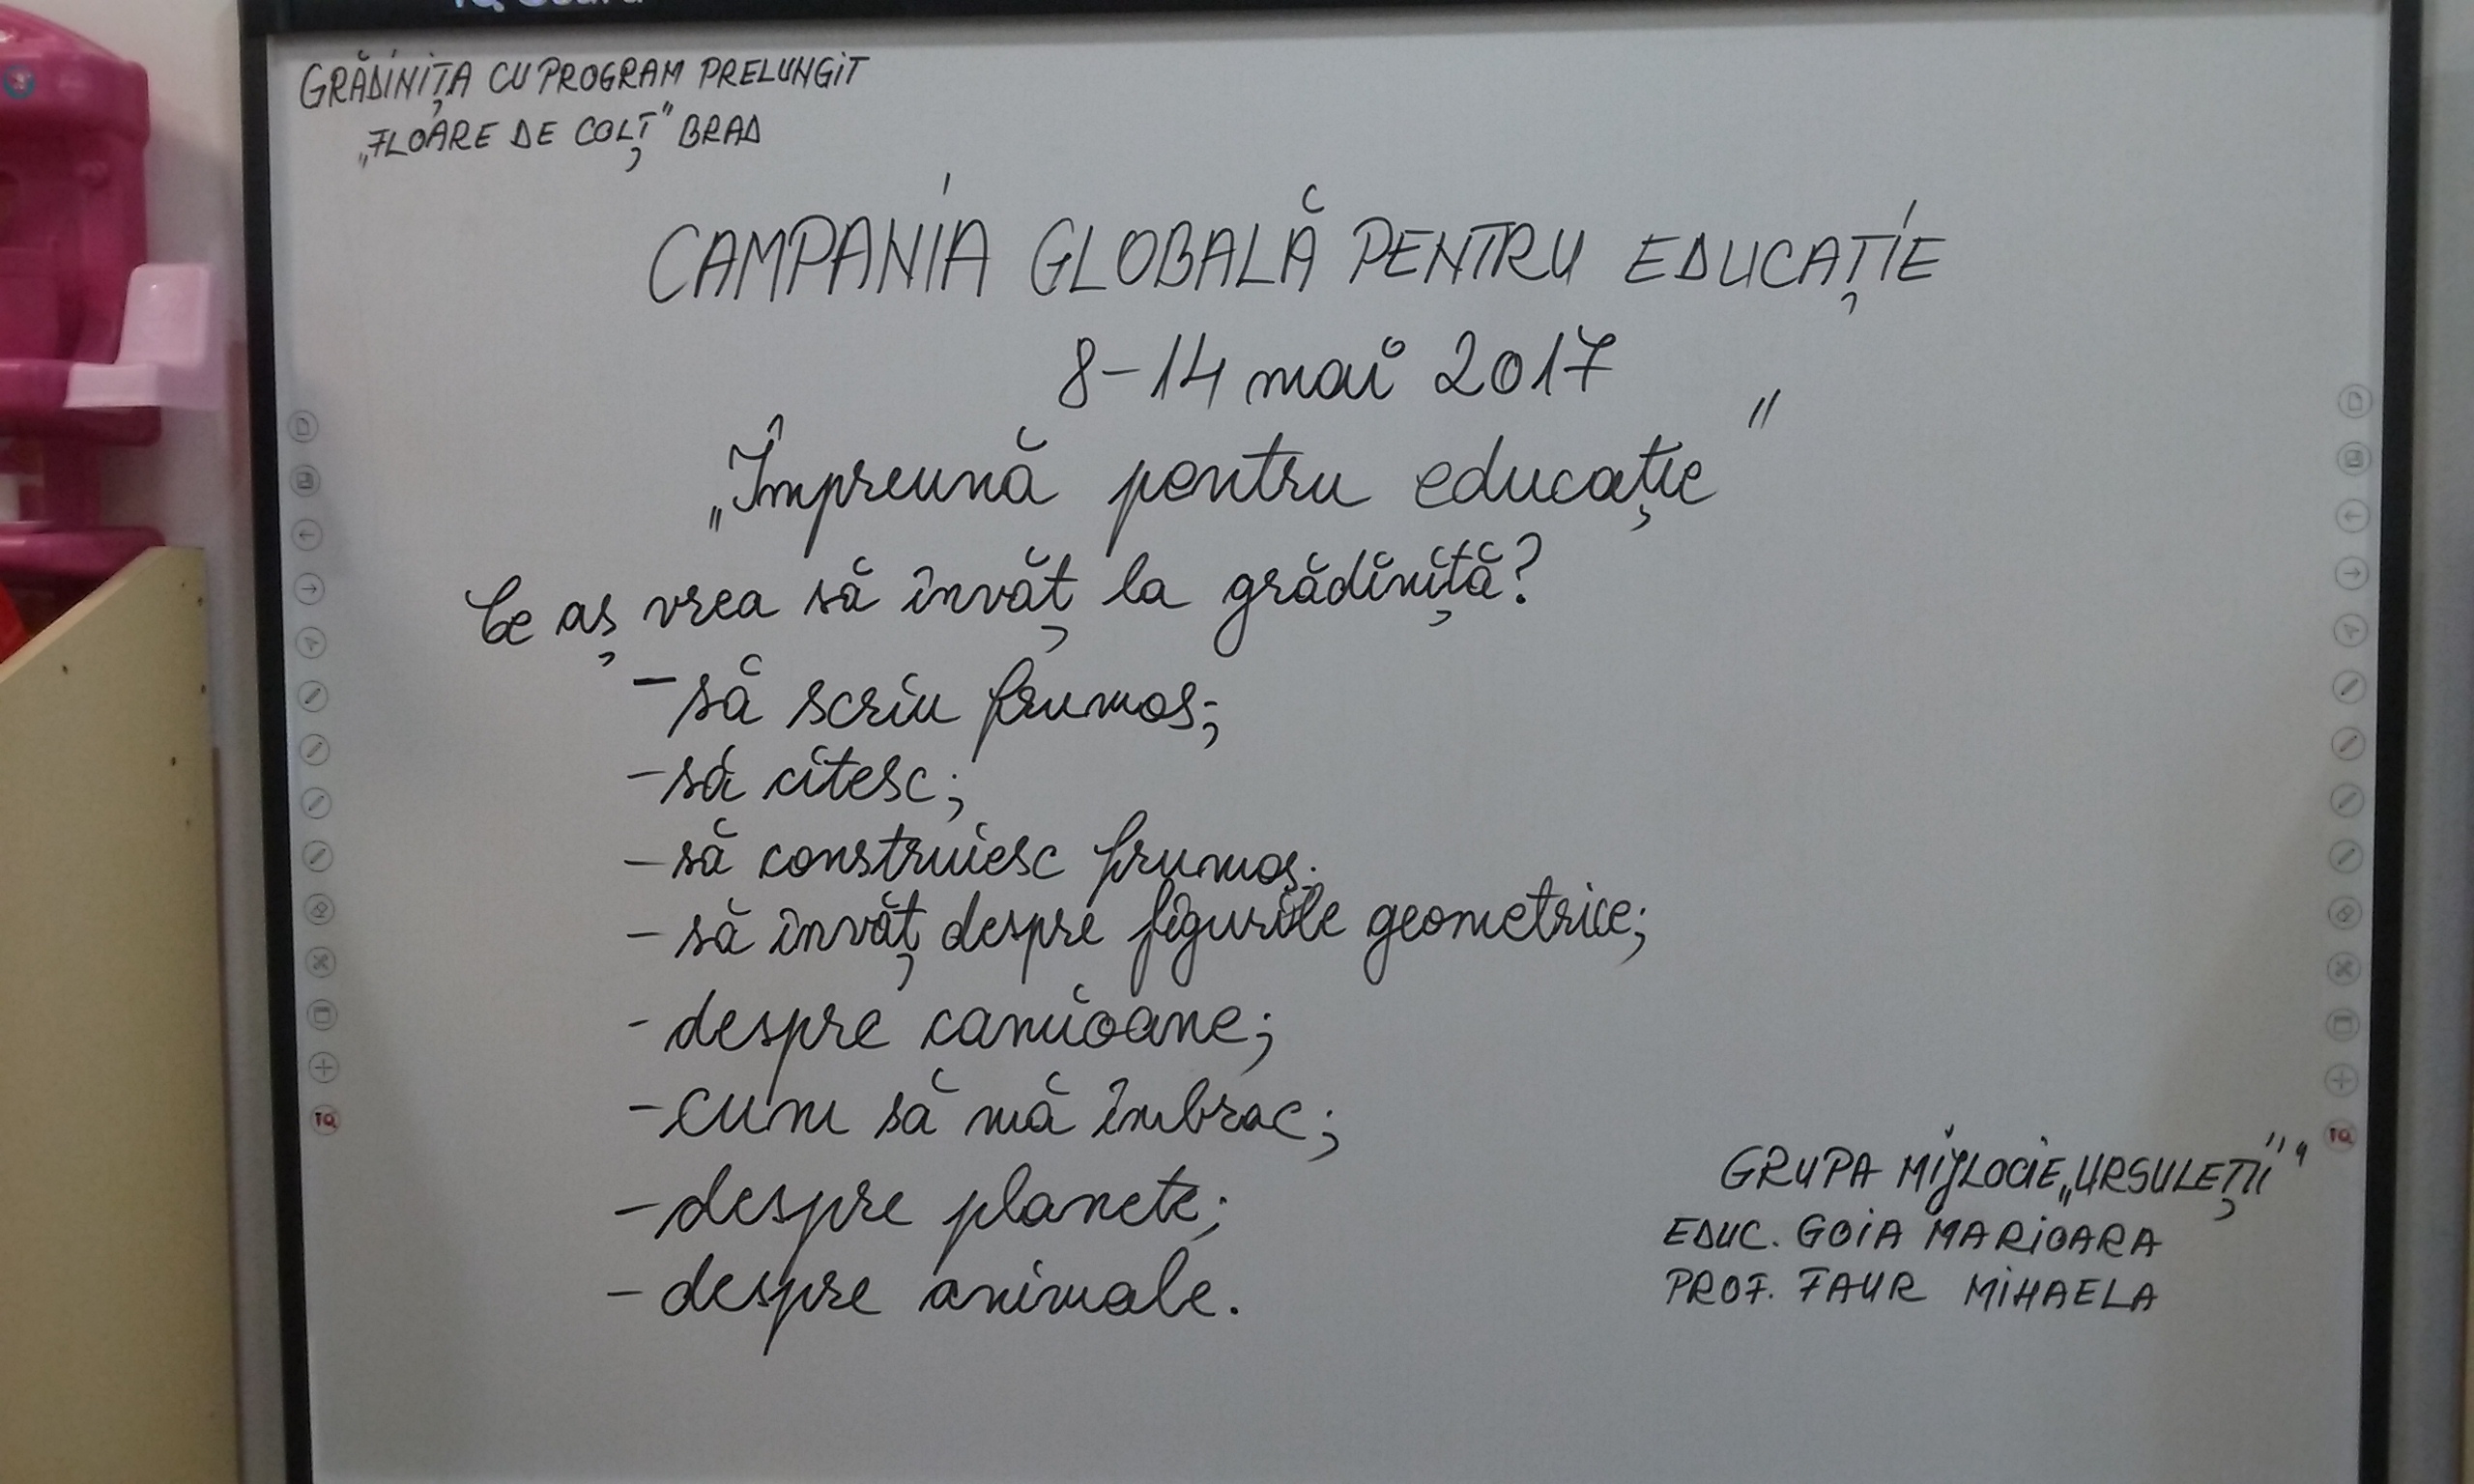 GRĂDINIȚA CU PROGRAM PRELUNGIT
„FLOARE DE COLȚ" BRAD
CAMPANIA GLOBALĂ PENTRU EDUCAȚIE
8-14 mai 2017
„Împreună pentru educație"
Ce aș vrea să învăț la grădiniță?
- să scriu frumos;
- să citesc;
- să construiesc frumos.
- să învăț despre figurile geometrice;
- despre camioane;
- cum să mă îmbrac;
- despre planete;
- despre animale.
GRUPA MIJLOCIE „URSULEȚII"
EDUC. GOIA MARIOARA
PROF. FAUR MIHAELA